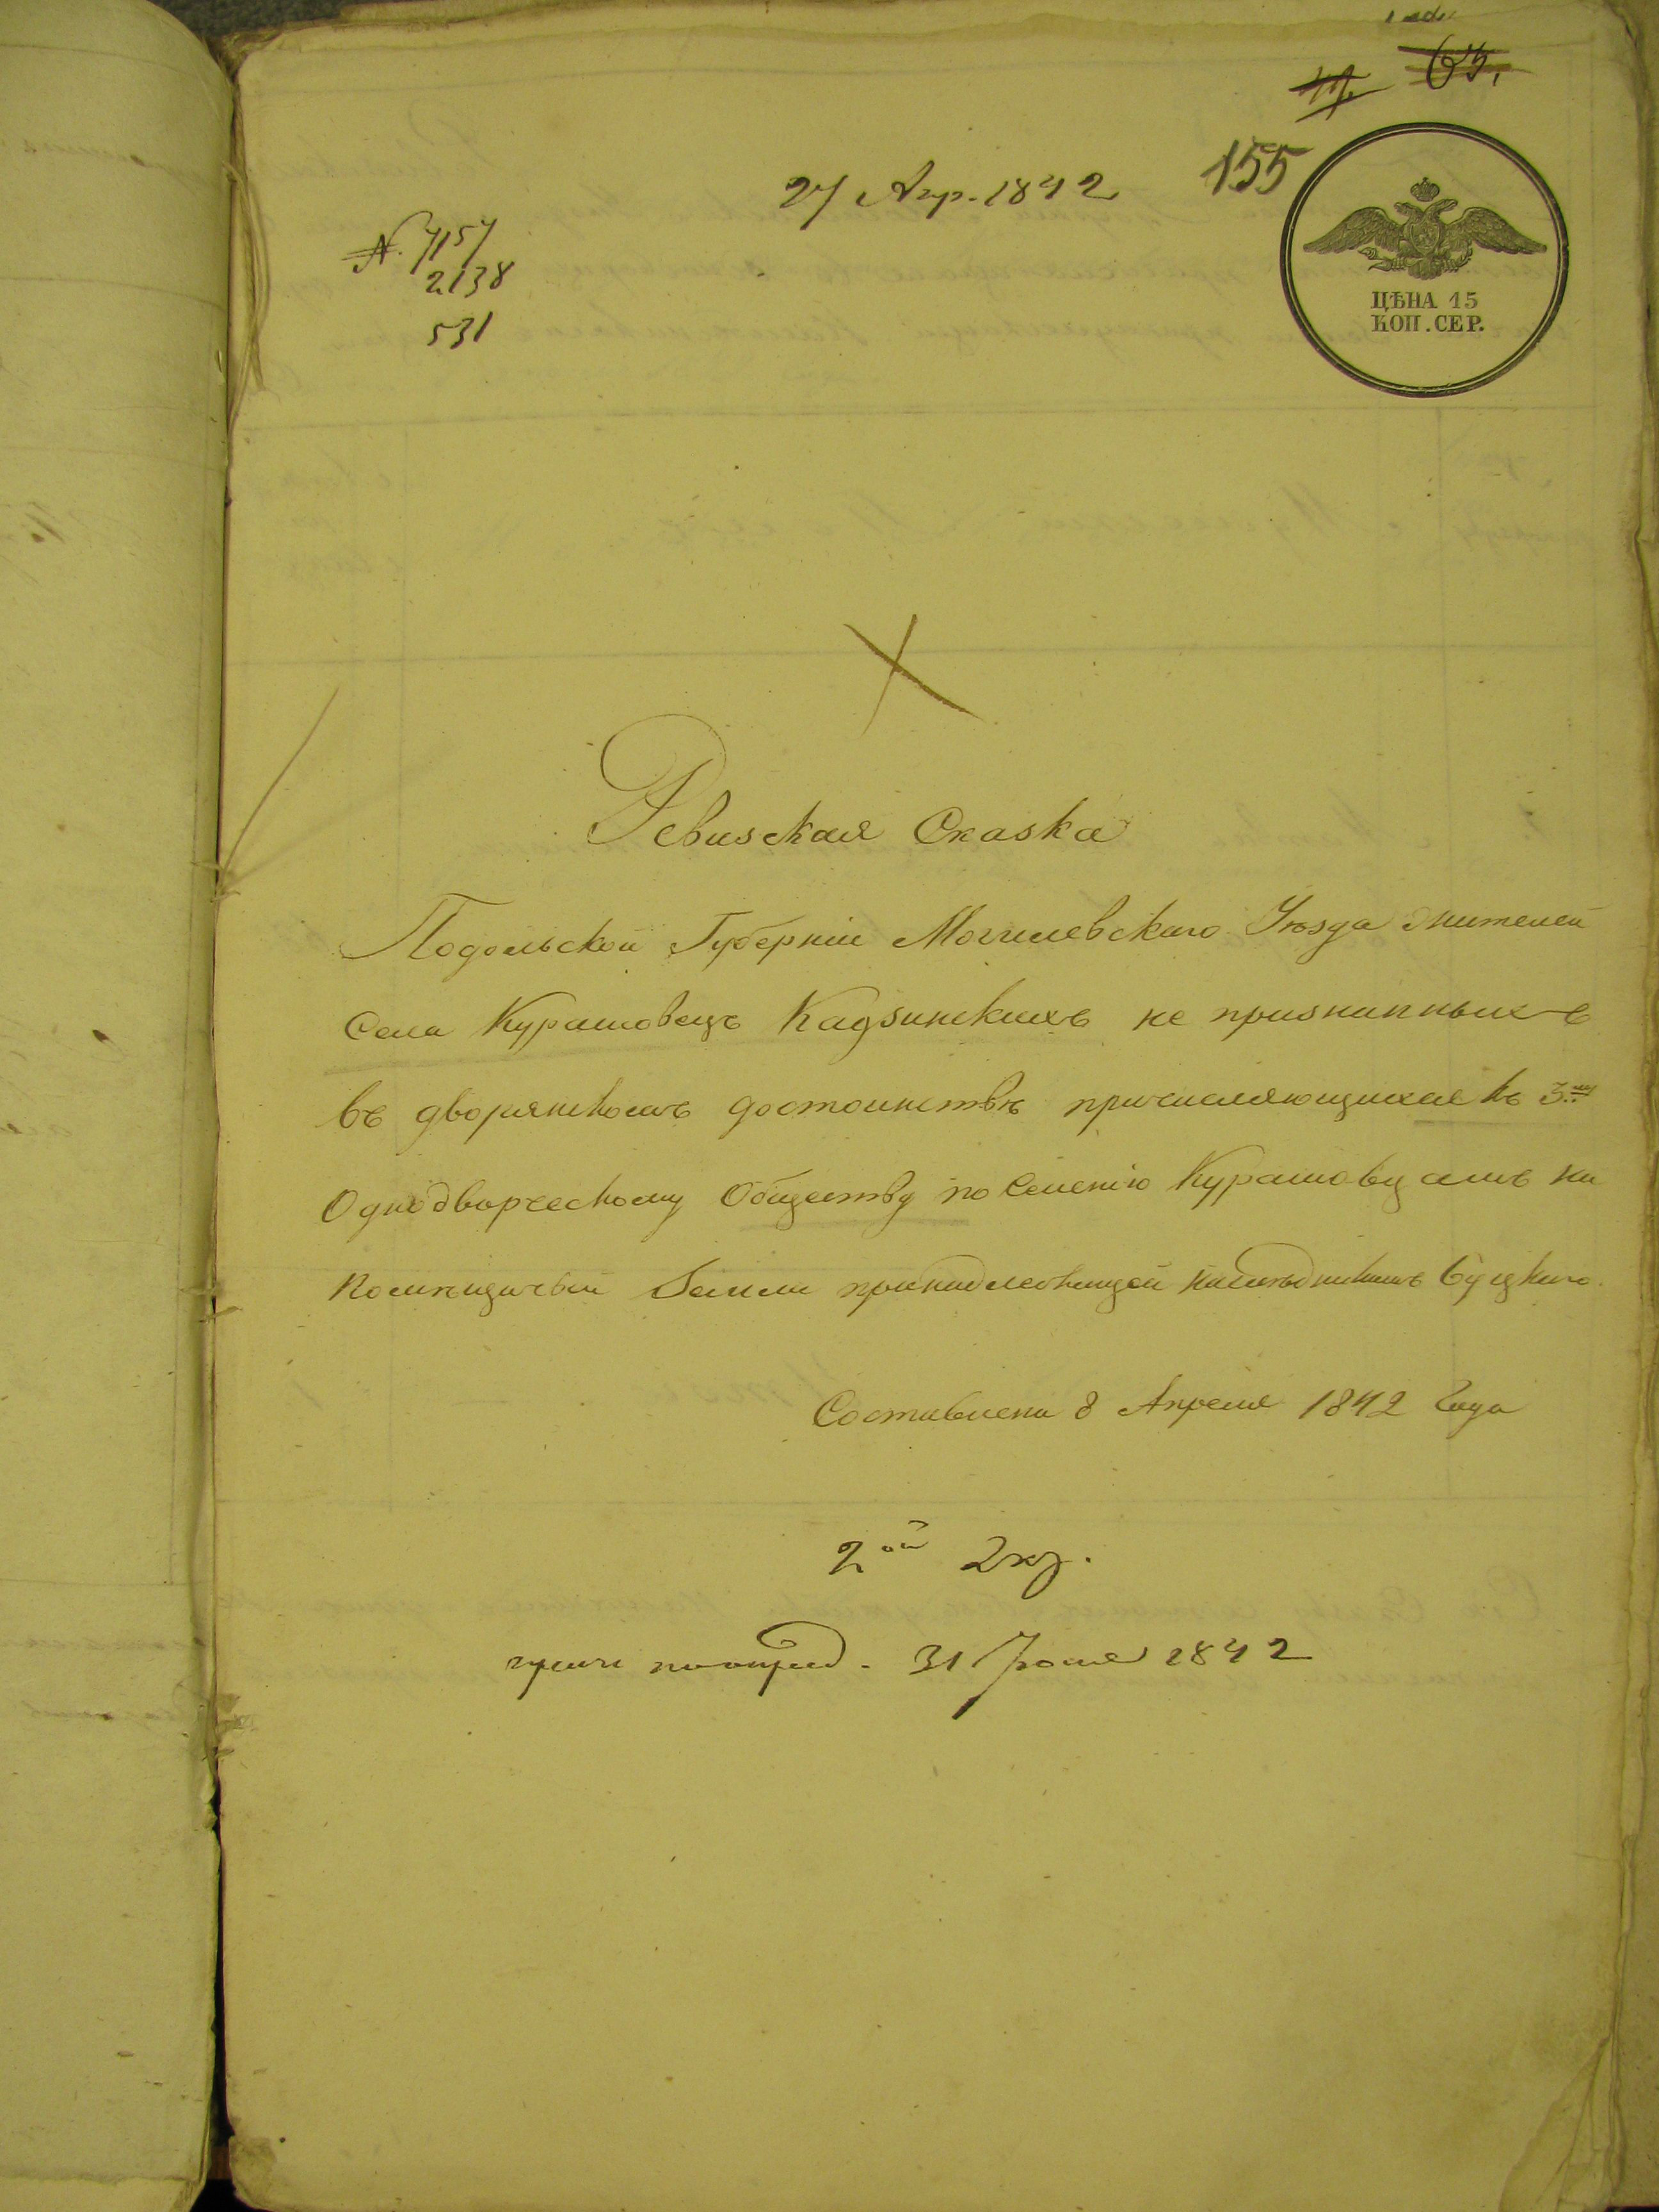 65.
155
27 Апр. 1842
№. 7157
2138
531
ЦѢНА 15
КОП. СЕР.
Ревизская Сказка
Подольской Губерніи Могилевскаго Уѣзда жителей
Села Курашовецъ Кадзинскихъ не признанныхъ
въ дворянскомъ достоинствѣ причисляющихся къ 3му
Однодворческому Обществу по Селенію Курашовцамъ на
помѣщичьей Земли принадлежащей наслѣдникамъ
Составлена 8 Апреля 1842 Года
2ой Экз.
31 Іюля 1842